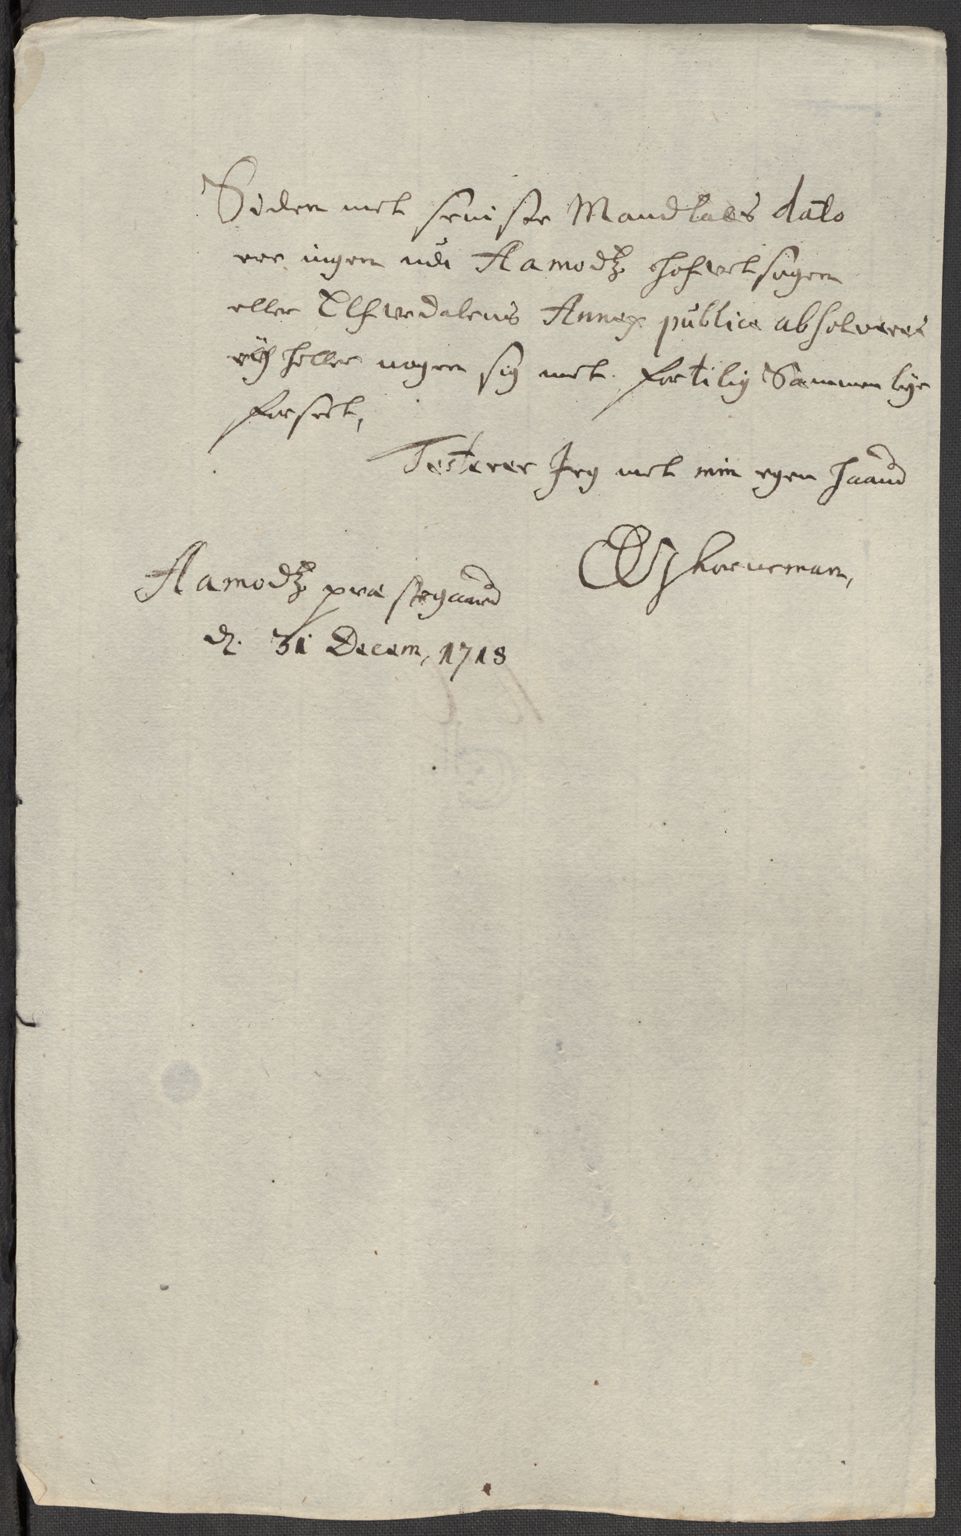 Siden met seniste Mandtals dato
ere ingen udi Aamodtz Hofvetsogen
eller Elfwedalens Annex publice absolveret
eÿ heller nogen sig met fortilig Sammenleye
forseet,
Testerer Jeg met min egen Haand
Horneman,
Aamodtz præstegaard
d. 31 Decem, 1718